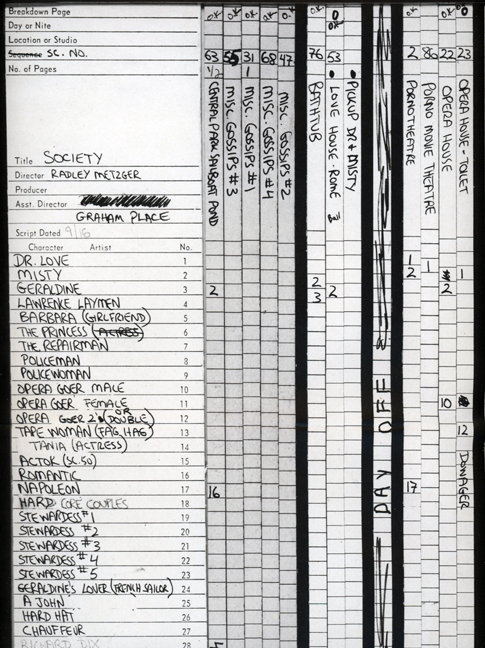 Breakdown Page OK OK OK OK O. OK O OK OK OK O
Day or Nite
Location or Studio
Sequence SC. NO. 63 55 31 68 47 76 53 2 86 22 23
No. of Pages 1/2 1
CENTRAL PARK SAILBOAT POND
MISC. GOSSIPS #3
MISC. GOSSIPS #1
MISC. GOSSIPS #4
MISC. GOSSIPS #2
BATHTUB
LOVE HOUSE - ROME
PICKUP DR + MISTY
DAY OFF
PORNO THEATRE
PORNO MOVIE THEATRE
OPERA HOUSE
OPERA HOUSE - TOILET
Title SOCIETY
Director RADLEY METZGER
Producer
Asst. Director
GRAHAM PLACE
Script Dated 9/16
Character Artist No.
DR. LOVE 1 1
MISTY 2 2 1 1
GERALDINE 3 2 2 2
LAWRENCE LAYMEN 4 3
BARBARA (GIRLFRIEND) 5
THE PRINCESS (ACTRESS) 6
THE REPAIRMAN 7
POLICEMAN 8
POLICEWOMAN 9
OPERA GOER MALE 10
OPERA GOER FEMALE 11 10
OPERA GOER 2 (OR DOUBLE) 12
TAPE WOMAN (FAG HAG) 13 12
TANIA (ACTRESS) 14
ACTOR (SC. 50) 15 DOWAGER
ROMANTIC 16
NAPOLEON 17 16 17
HARD CORE COUPLES 18
STEWARDESS #1 19
STEWARDESS #2 20
STEWARDESS #3 21
STEWARDESS #4 22
STEWARDESS #5 23
GERALDINE'S LOVER (FRENCH SAILOR) 24
A JOHN 25
HARD HAT 26
CHAUFFEUR 27
RICHARD DIX 28